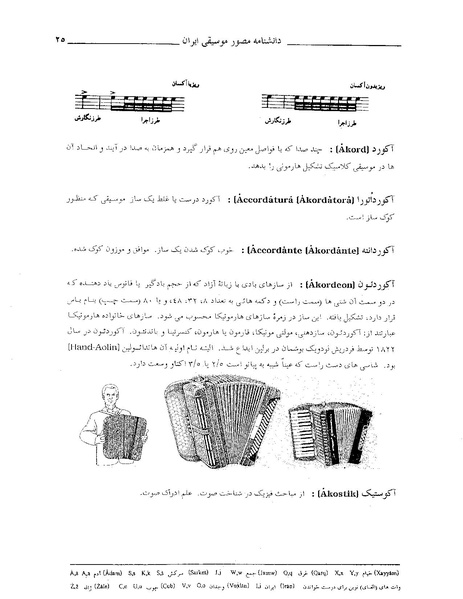 دانشنامه مصور موسیقی ایران ۲۵
ویز باآکسان ویز بدون آکسان
طرزنگارش طرزاجرا طرزاجرا طرزنگارش
آکورد [Âkord] : چند صدا که با فواصل معین روی هم قرار گیرد و همزمان به صدا در آیند و اتحاد آن
ها در موسیقی کلاسیک تشکیل هارمونی را بدهد.
آکورداتورا [Accordâturâ [Âkordâtorâ : آکورد درست یا غلط یک ساز موسیقی که منظور
کوک ساز است.
آکوردانته [Accordânte [Âkordânte : خوب کوک شدن یک ساز. موافق و موزون کوک شده.
آکوردئون [Âkordeon] : از سازهای بادی با زبانهٔ آزاد که از حجم بادگیر یا فانوس باد دهنده که
در دو سمت آن شتی ها (سمت راست) و دکمه هائی به تعداد ۸، ۳۲، ۴۸، و یا ۸۰ (سمت چپ) بنام باس
قرار دارد، تشکیل یافته. این ساز در زمرهٔ سازهای هارمونیکا محسوب می شود. سازهای خانواده هارمونیکا
عبارتند از: آکوردئون، سازدهنی، مولتی مونیکا، فارمون یا هارمون، کنسرتینا و باندنئون. آکوردئون در سال
۱۸۲۲ توسط فردریش لودویک بوشمان در برلین ابداع شد. البته نام اولیه آن هاندائولین [Hand-Aolin]
بود. شاسی های دست راست که عیناً شبیه به پیانو است ۲/۵ یا ۳/۵ اکتاو وسعت دارد.
آکوستیک [Âkostik] : از مباحث فیزیک در شناخت صوت. علم ادراک صوت.